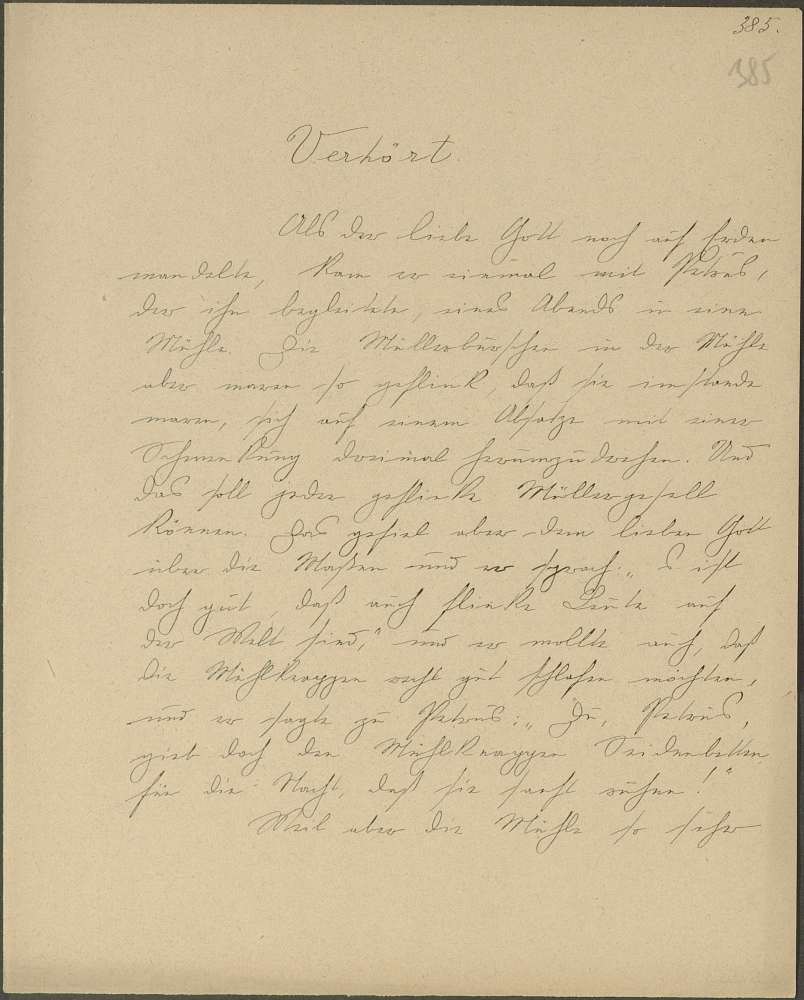 385.
385
Verhört.
Als der liebe Gott noch auf Erden
wandelte, kam er einmal mit Petrus,
der ihn begleitete, eines Abends in eine
Mühle. Die Müllerburschen in der Mühle
aber waren so geflink, daß sie imstande
waren, sich auf einem Absatze mit einer
Schwenkung dreimal herumzudrehen. Und
das soll jeder geflinke Müllergesell
können. Das gefiel aber dem lieben Gott
über die Maßen und er sprach: „S ist
doch gut, daß auch flinke Leute auf
der Welt sind,“ und er wollte auch, daß
die Mühlknappen recht gut schlafen möchten,
und er sagte zu Petrus: „Du, Petrus,
gieb doch den Mühlknappen Seidenbetten
für die Nacht, daß sie sanft ruhen!“
Weil aber die Mühle so sehr